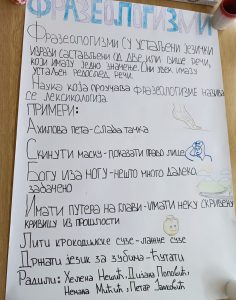 ФРАЗЕОЛОГИЗМИ
Фразеологизми су устаљени језички
изрази састављени од две или више речи,
који имају једно значење. Они увек имају
устаљен редослед речи.
Наука која проучава фразеологизме назива
се лексикологија.
ПРИМЕРИ:
Ахилова пета-слаба тачка
Скинути маску-показати право лице
Богу иза ногу-нешто много далеко,
забачено
Имати путера на глави-имати неку скривену
кривицу из прошлости
Лити крокодилске сузе-лажне сузе
Држати језик за зубима-ћутати
Радили: Хелена Нешић, Дијана Поповић,
Немања Митић, Петар